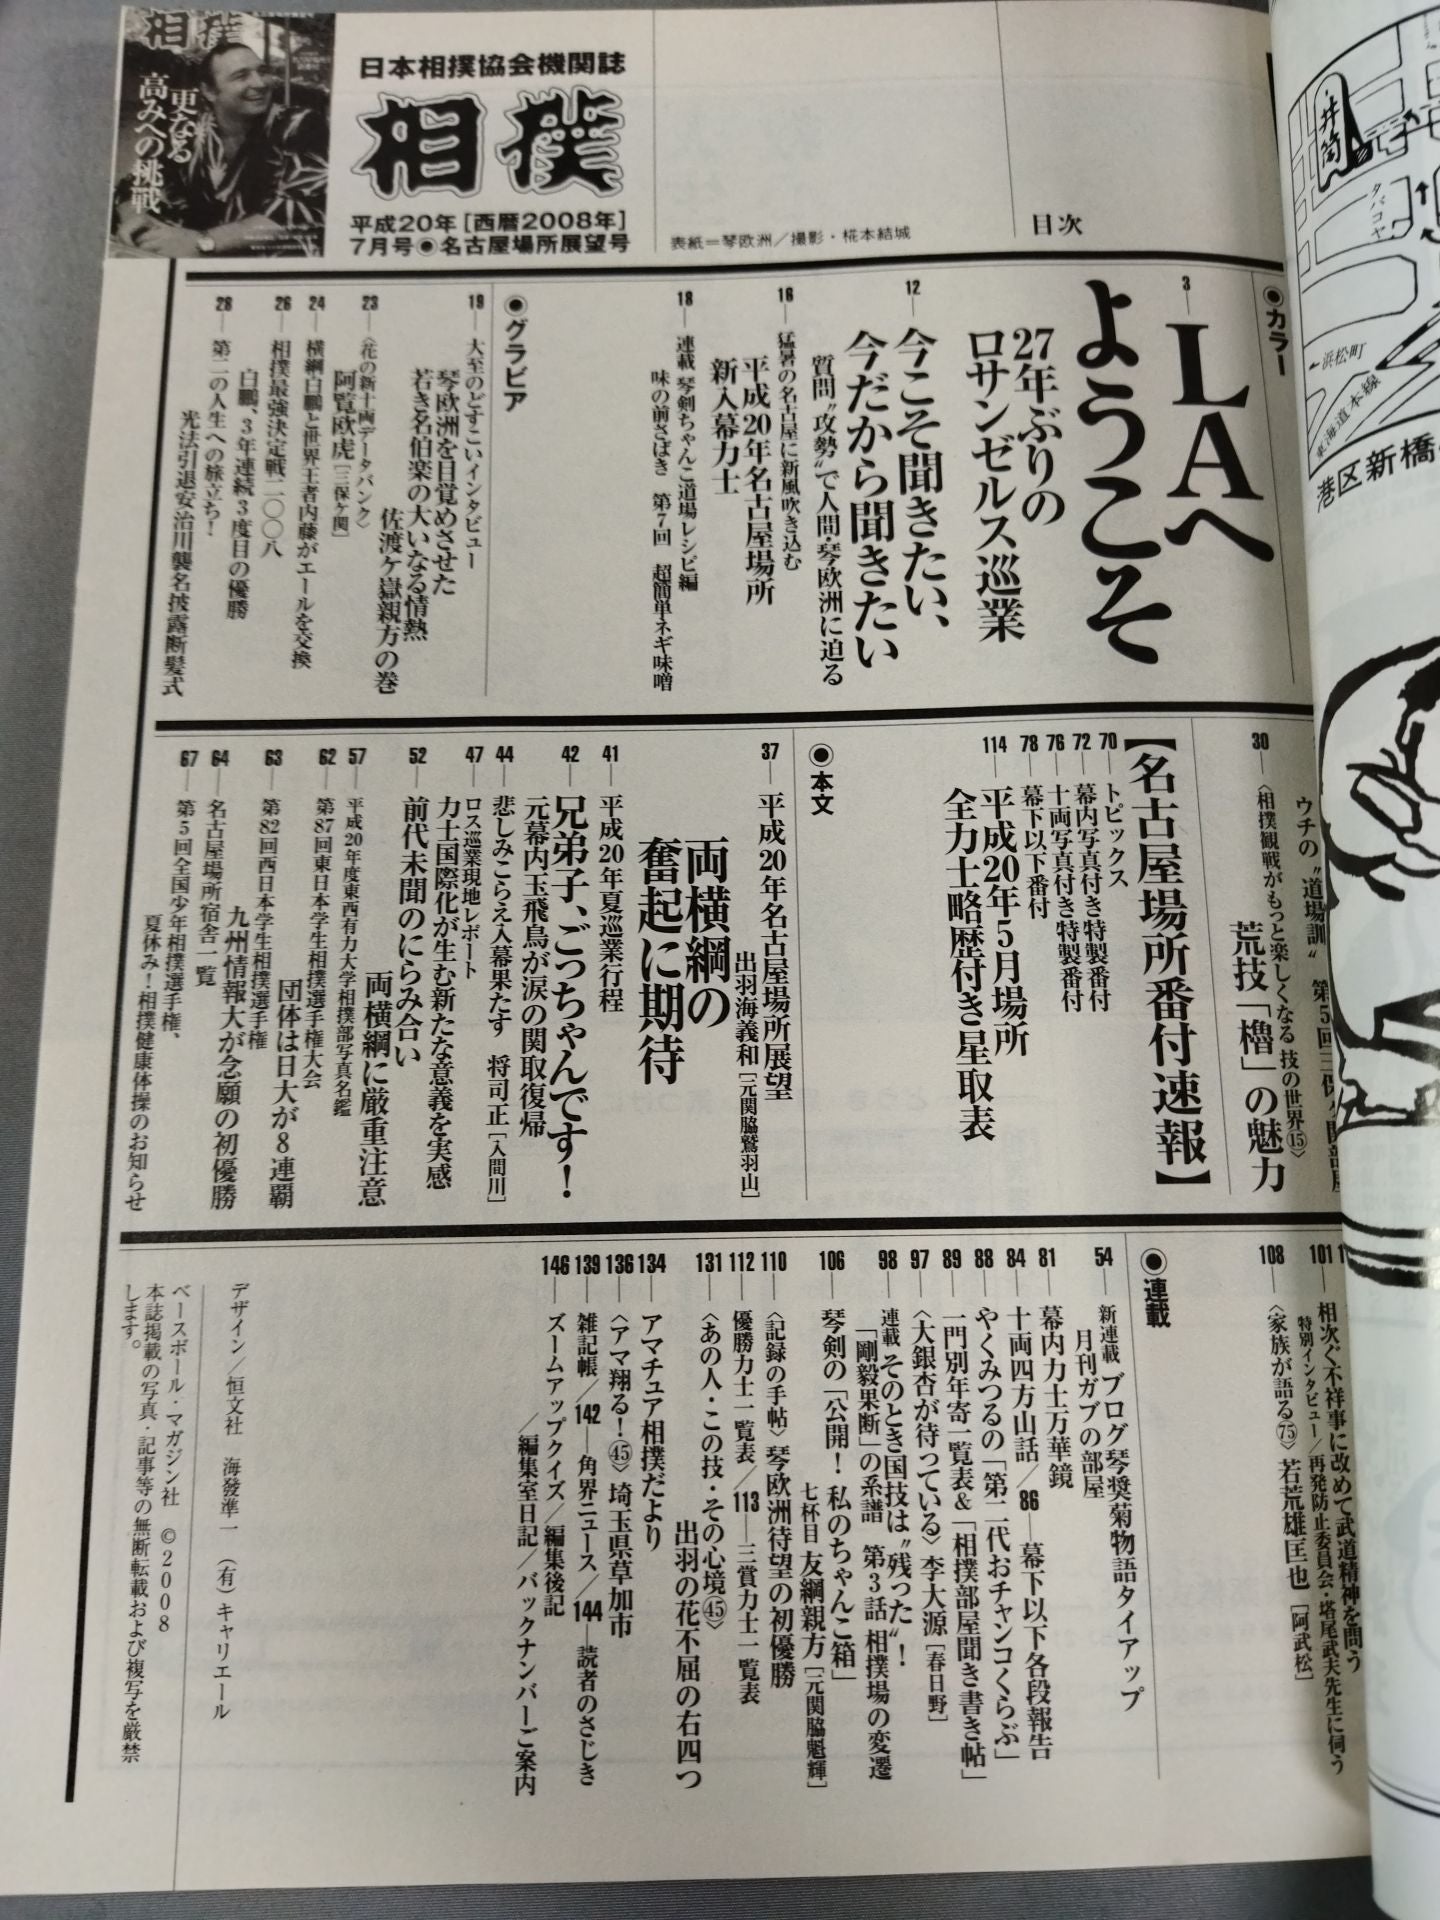 相撲
更なる
高みへの挑戦
日本相撲協会機関誌
相撲
平成20年[西暦2008年]
7月号●名古屋場所展望号
表紙=琴欧洲/撮影・椛本結城
目次
●カラー
3 LAへ
ようこそ
27年ぶりの
ロサンゼルス巡業
12 今こそ聞きたい、
今だから聞きたい
質問〝攻勢〟で人間・琴欧洲に迫る
16 猛暑の名古屋に新風吹き込む
平成20年名古屋場所
新入幕力士
18 連載 琴剣ちゃんこ道場レシピ編
味の前さばき 第7回 超簡単ネギ味噌
●グラビア
19 大至のどすこいインタビュー
琴欧洲を目覚めさせた
若き名伯楽の大いなる情熱
佐渡ケ嶽親方の巻
23 〈花の新十両データバンク〉
阿覧欧虎[三保ケ関]
24 横綱白鵬と世界王者内藤がエールを交換
26 相撲最強決定戦二〇〇八
白鵬、3年連続3度目の優勝
28 第二の人生への旅立ち!
光法引退安治川襲名披露断髪式
ウチの〝道場訓〟 第5回三保ケ関部屋
30 〈相撲観戦がもっと楽しくなる 技の世界⑮〉
荒技「櫓」の魅力
【名古屋場所番付速報】
70 トピックス
72 幕内写真付き特製番付
76 十両写真付き特製番付
78 幕下以下番付
114 平成20年5月場所
全力士略歴付き星取表
●本文
37 平成20年名古屋場所展望
出羽海義和[元関脇鷲羽山]
両横綱の
奮起に期待
41 平成20年夏巡業行程
42 兄弟子、ごっちゃんです!
元幕内玉飛鳥が涙の関取復帰
44 悲しみこらえ入幕果たす 将司正[入間川]
47 ロス巡業現地レポート
力士国際化が生む新たな意義を実感
52 前代未聞のにらみ合い
両横綱に厳重注意
57 平成20年度東西有力大学相撲部写真名鑑
62 第87回東日本学生相撲選手権大会
団体は日大が8連覇
63 第82回西日本学生相撲選手権
九州情報大が念願の初優勝
64 名古屋場所宿舎一覧
67 第5回全国少年相撲選手権、
夏休み!相撲健康体操のお知らせ
●連載
54 新連載 ブログ琴奨菊物語タイアップ
月刊ガブの部屋
81 幕内力士万華鏡
84 十両四方山話/86 幕下以下各段報告
88 やくみつるの「第二代おチャンコくらぶ」
89 一門別年寄一覧表&「相撲部屋聞き書き帖」
97 〈大銀杏が待っている〉李大源[春日野]
98 連載 そのとき国技は〝残った〟!
「剛毅果断」の系譜 第3話 相撲場の変遷
101 相次ぐ不祥事に改めて武道精神を問う
特別インタビュー/再発防止委員会・塔尾武夫先生に伺う
106 琴剣の「公開!私のちゃんこ箱」
七杯目 友綱親方[元関脇魁輝]
108 〈家族が語る75〉若荒雄匡也[阿武松]
110 〈記録の手帖〉琴欧洲待望の初優勝
112 優勝力士一覧表/113 三賞力士一覧表
131 〈あの人・この技・その心境㊺〉
出羽の花不屈の右四つ
134 アマチュア相撲だより
136 〈アマ翔る!㊺〉埼玉県草加市
139 雑記帳/142 角界ニュース/144 読者のさじき
146 ズームアップクイズ/編集後記
/編集室日記/バックナンバーご案内
デザイン/恒文社 海發準一 (有)キャリエール
ベースボール・マガジン社 ©2008
本誌掲載の写真・記事等の無断転載および複写を厳禁
します。
井筒
タバコヤ
←浜松町
東海道本線
港区新橋